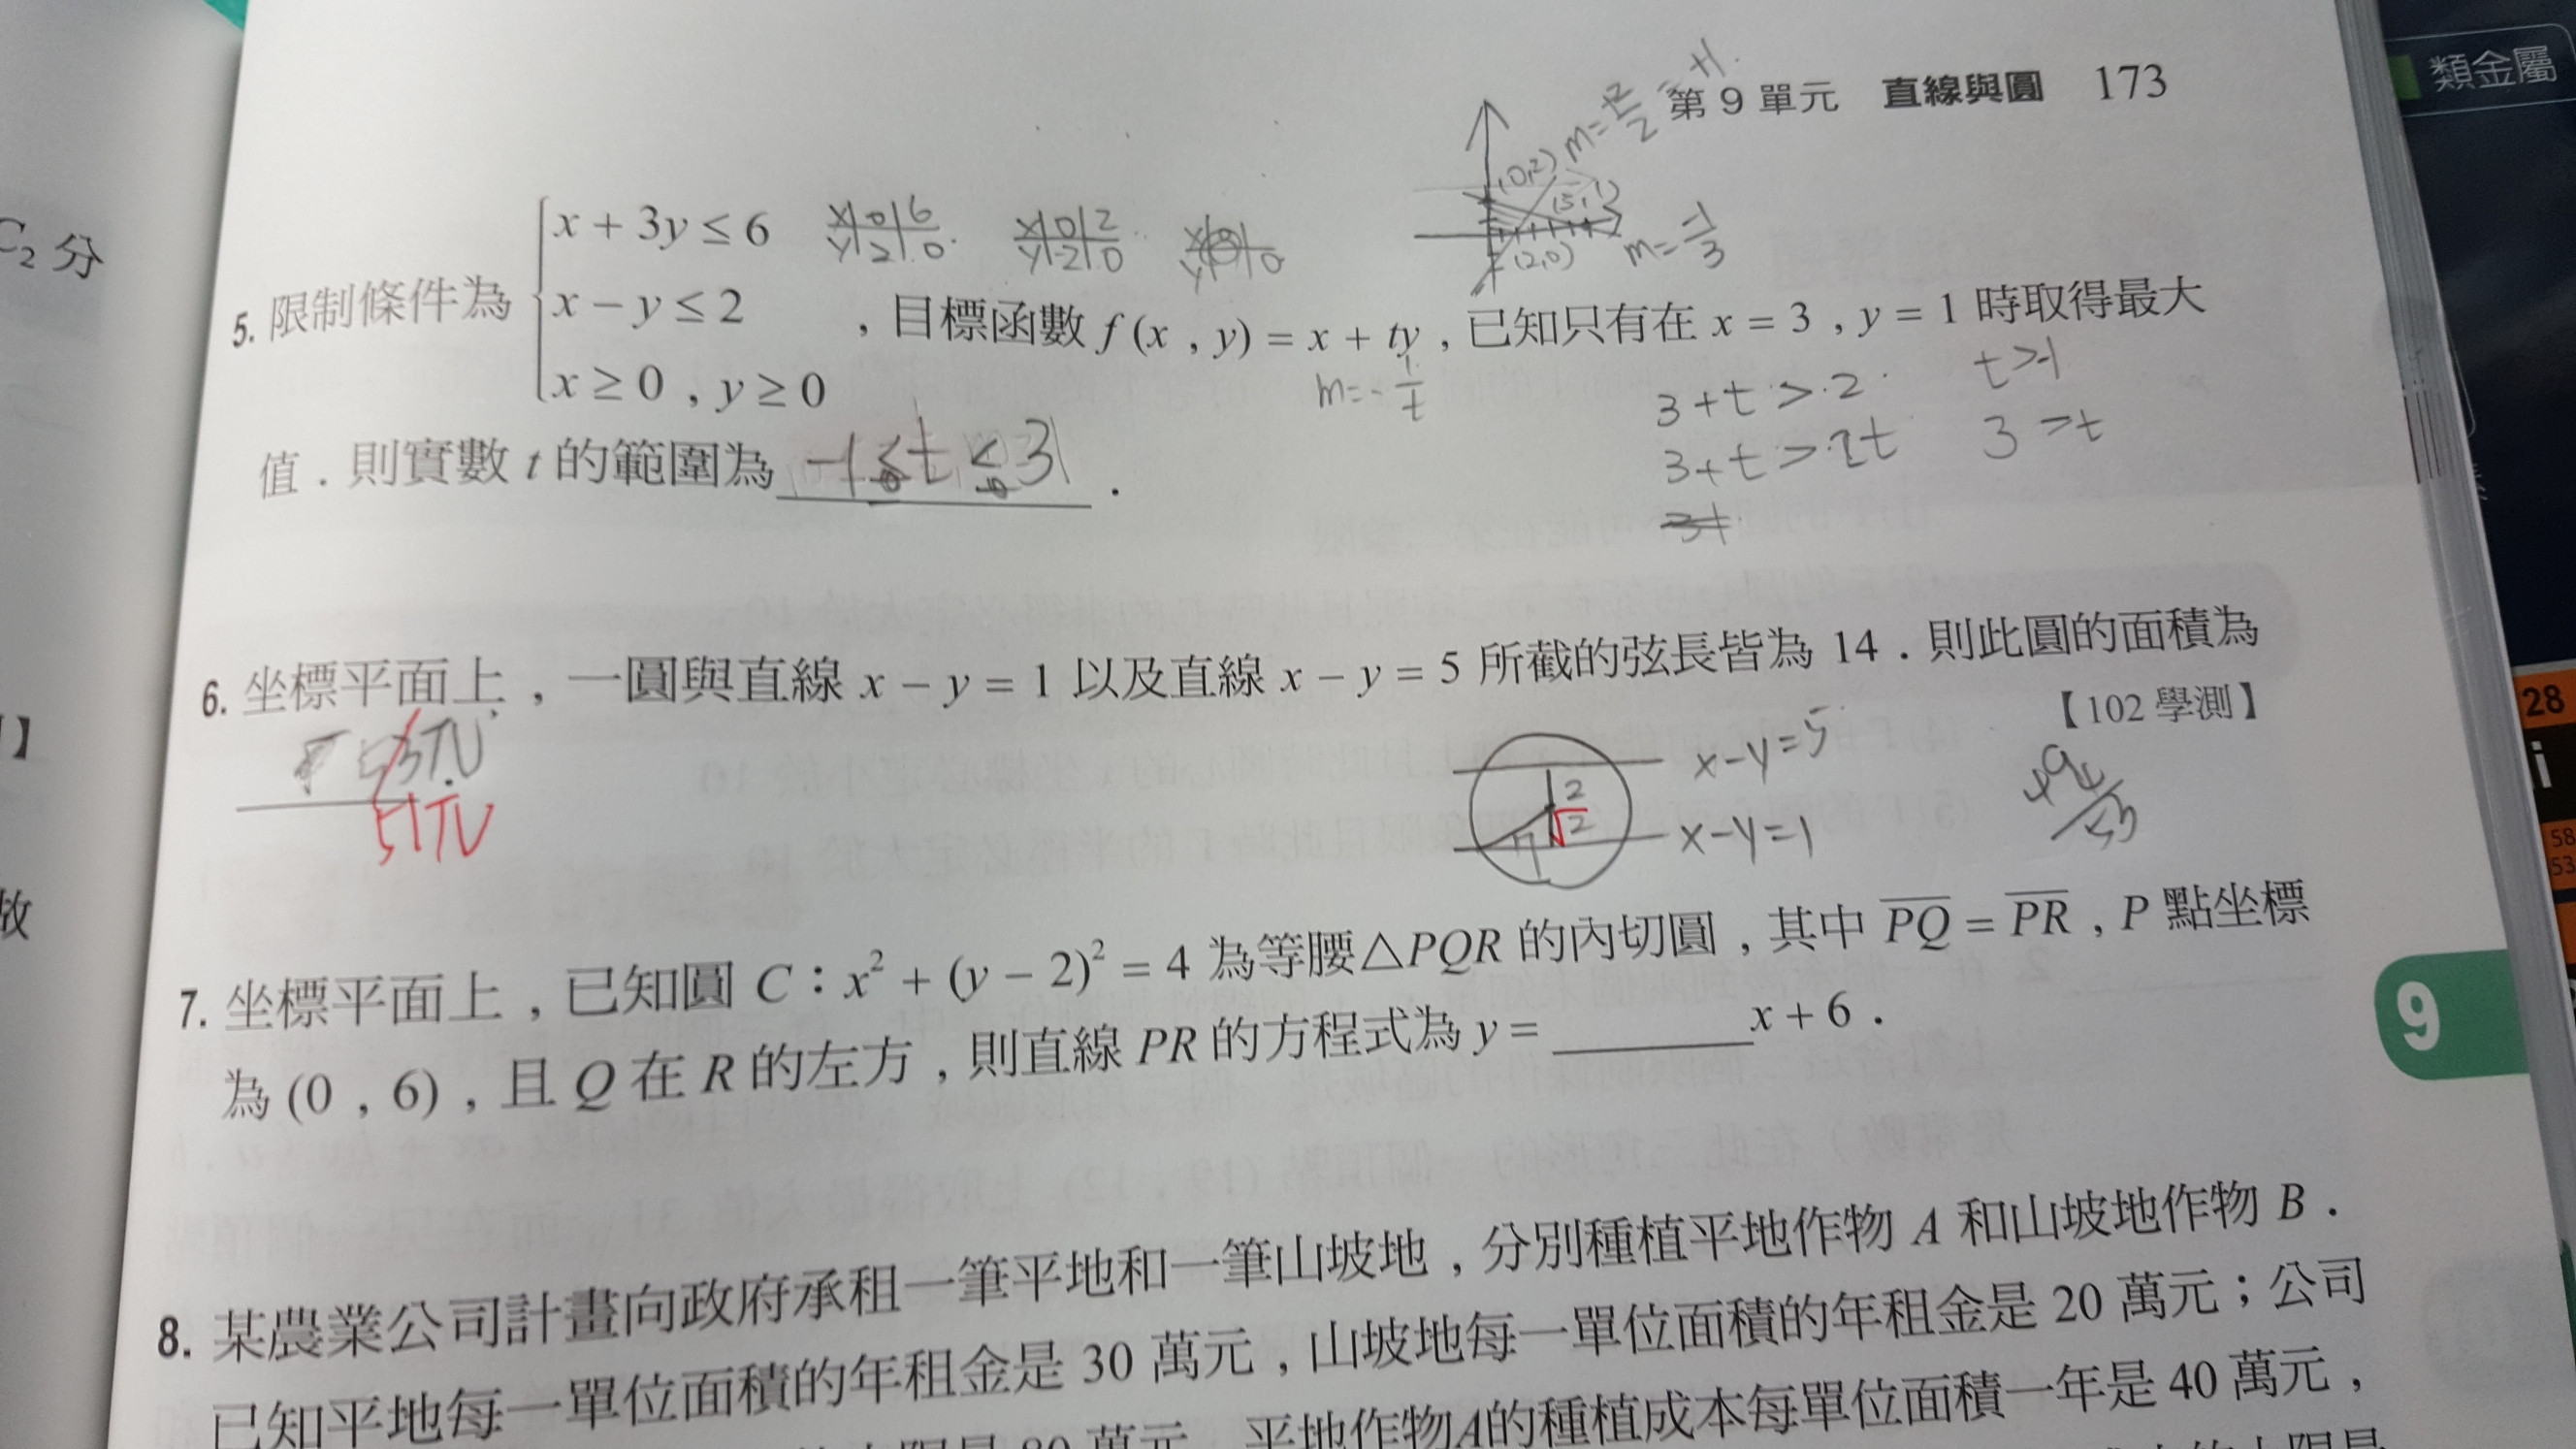 類金屬
第 9 單元 直線與圓 173
m=
=+1
(0,2)
(3,1)
(2,0)
m=-1/3
C₂ 分
x + 3y ≤ 6
x | 0 | 6
y | 2 | 0
x | 0 | 2
y | -2 | 0
5. 限制條件為 x − y ≤ 2 , 目標函數 f (x , y) = x + ty , 已知只有在 x = 3 , y = 1 時取得最大
x ≥ 0 , y ≥ 0
m=-1/t
3+t>2
t>-1
3+t>2t
3>t
值 . 則實數 t 的範圍為 -1<t<3 .
6. 坐標平面上 , 一圓與直線 x − y = 1 以及直線 x − y = 5 所截的弦長皆為 14 . 則此圓的面積為
【102 學測】
53π
51π
x-y=5
2
√2
7
x-y=1
49
4
53
7. 坐標平面上 , 已知圓 C：x² + (y − 2)² = 4 為等腰△PQR 的內切圓 , 其中 PQ = PR , P 點坐標
為 (0 , 6) , 且 Q 在 R 的左方 , 則直線 PR 的方程式為 y = ______ x + 6 .
9
8. 某農業公司計畫向政府承租一筆平地和一筆山坡地 , 分別種植平地作物 A 和山坡地作物 B .
已知平地每一單位面積的年租金是 30 萬元 , 山坡地每一單位面積的年租金是 20 萬元；公司
80 萬元 平地作物A的種植成本每單位面積一年是 40 萬元 ,
28
i
58
53